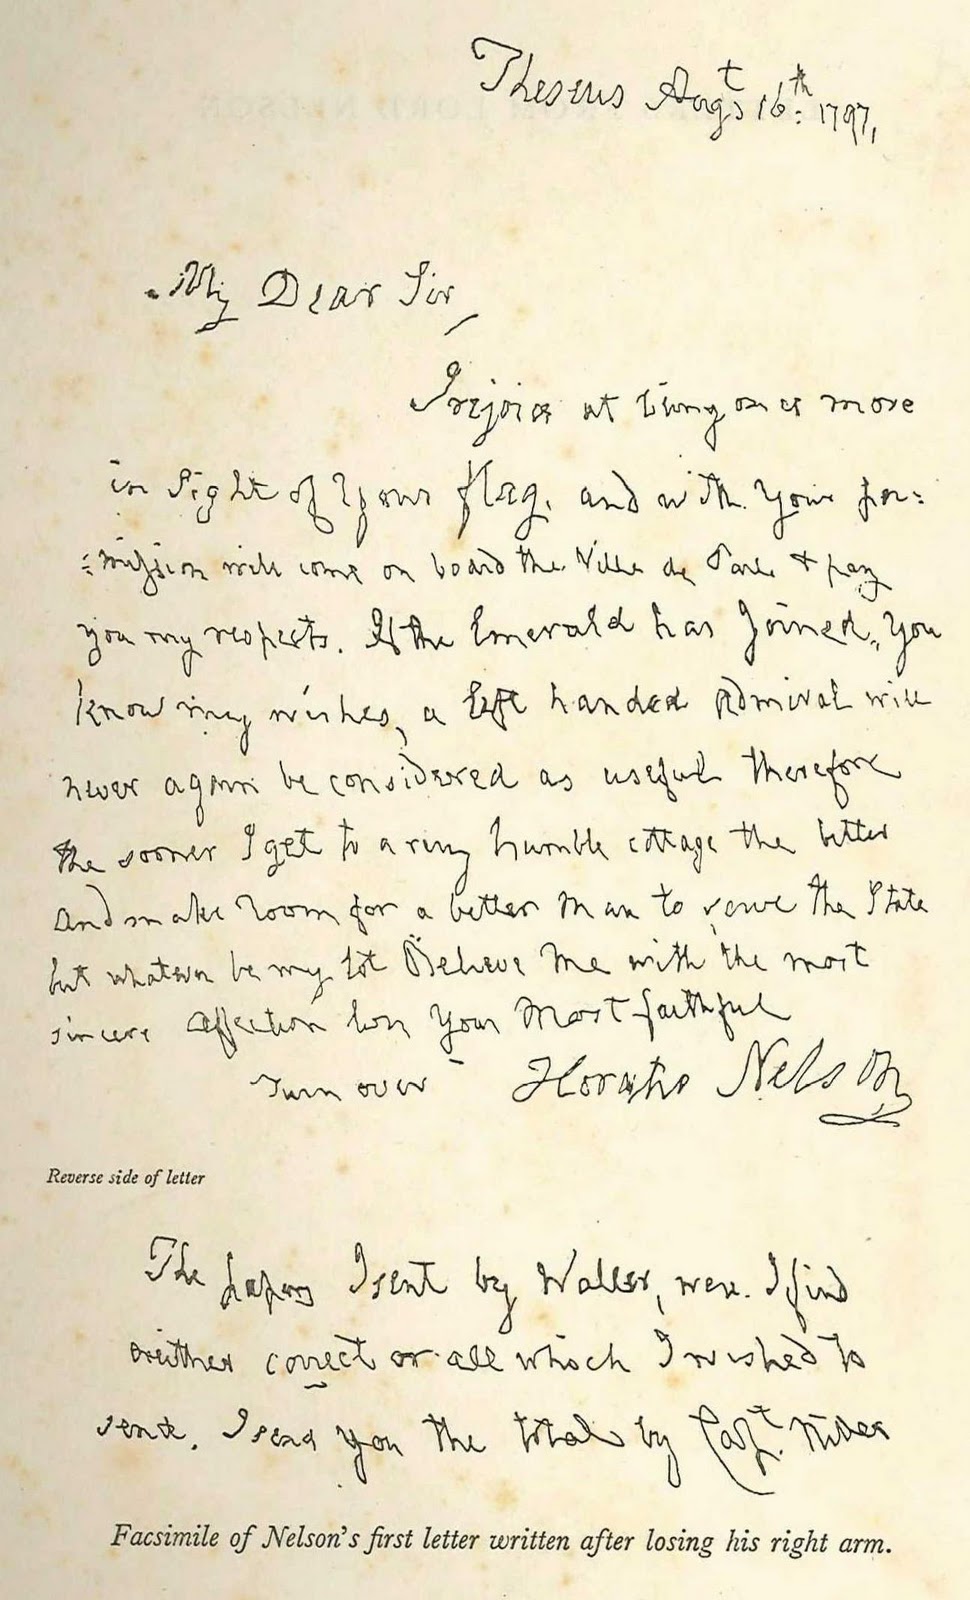 Theseus Augst 16th: 1797,
My Dear Sir,
I rejoice at being once more
in sight of Your flag, and with Your per:
=mission will come on board the Ville de Paris & pay
you my respects. If the Emerald has Joined, You
know my wishes, a left handed Admiral will
never again be considered as useful therefore
the sooner I get to a very humble cottage the better
and make room for a better Man to serve the State
but whatever be my lot Believe Me with the most
sincere affection Ever Your Most faithful
Turn over Horatio Nelson
Reverse side of letter
The papers I sent by Waller, were. I find
neither correct or all which I wished to
send. I send you the total by Capt. Miller
Facsimile of Nelson's first letter written after losing his right arm.